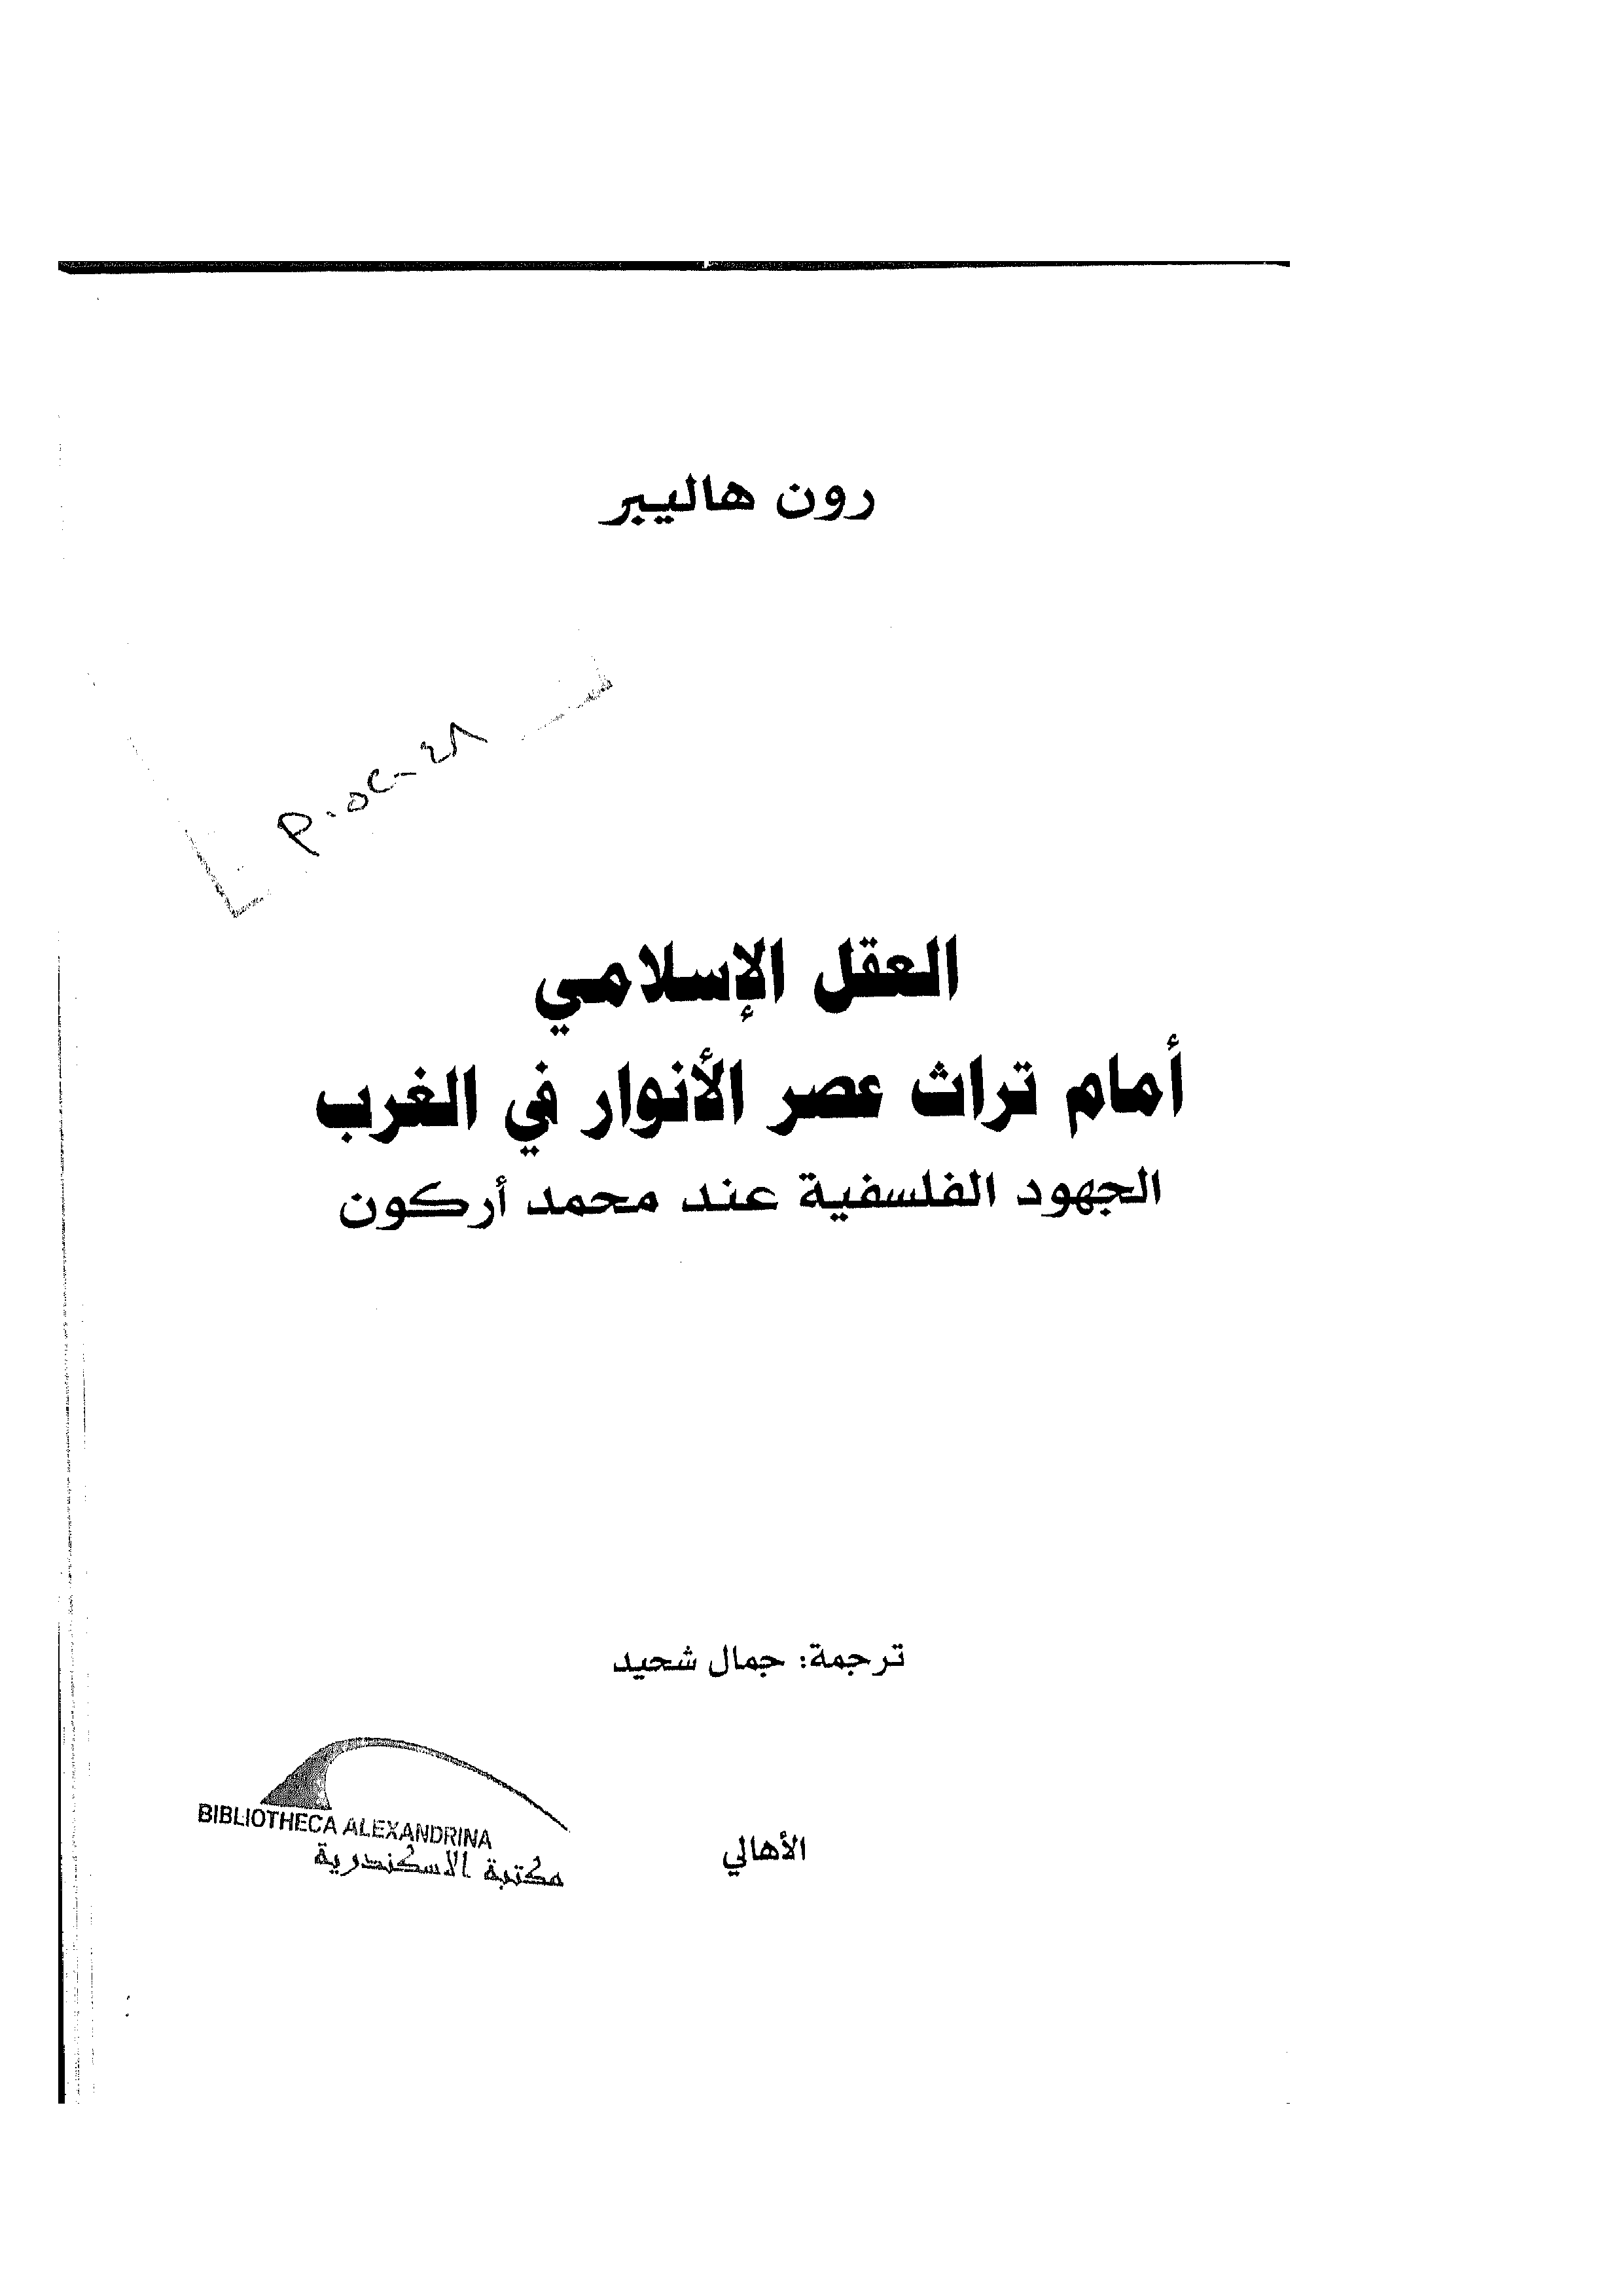 رون هاليبر
العقل الإسلامي
أمام تراث عصر الأنوار في الغرب
الجهود الفلسفية عند محمد أركون
ترجمة: جمال شحيد
BIBLIOTHECA ALEXANDRINA
مكتبة الاسكندرية
الأهالي